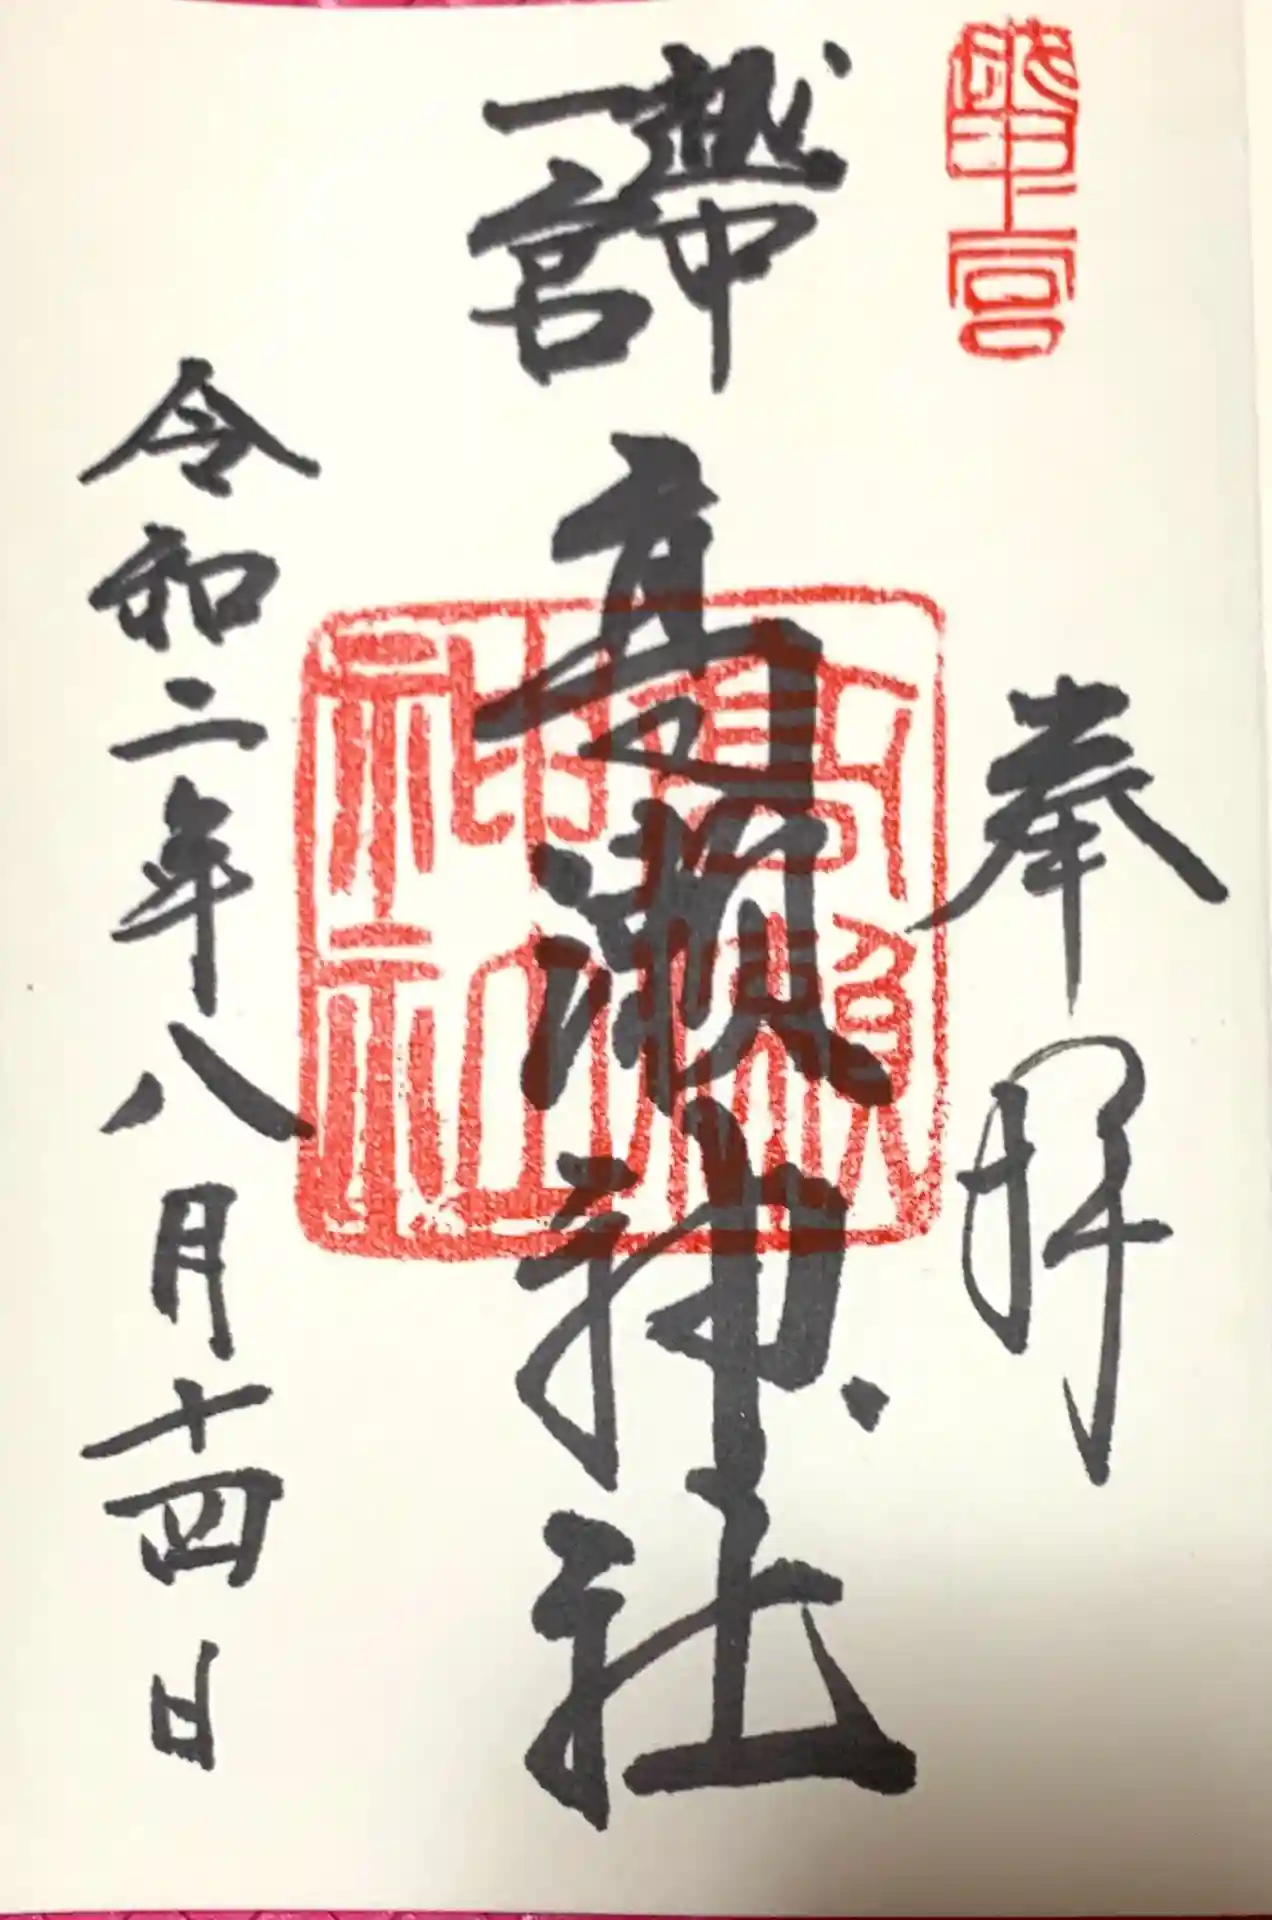 越中一宮
奉拝
越中
一宮
高瀬神社
高瀬
神社
令和二年八月十四日